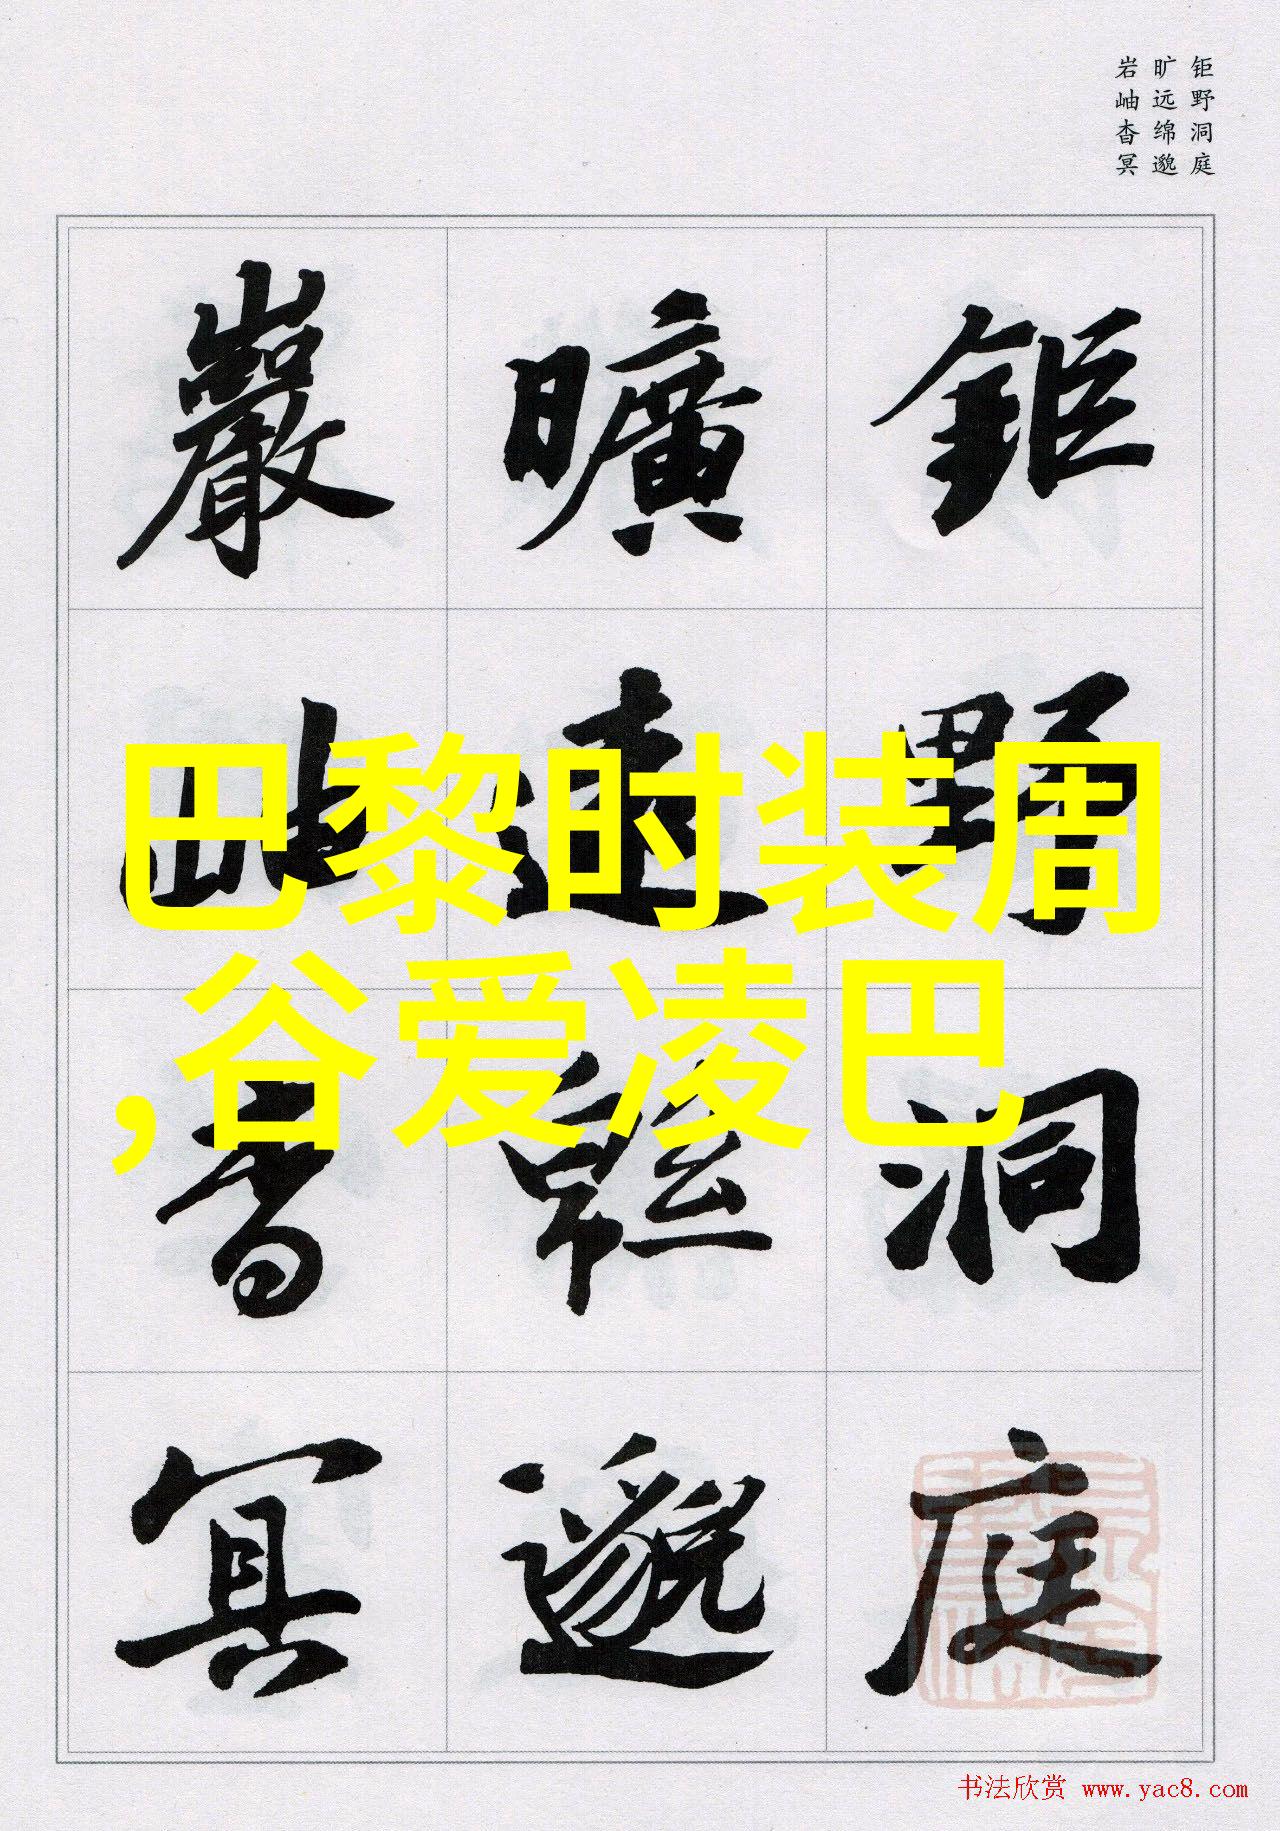 钜野洞庭
旷远绵邈
岩岫杳冥
鉅野洞庭
曠遠緜邈
巖岫杳冥
巴黎时装周
,谷爱凌巴
书法欣赏 www.yac8.com